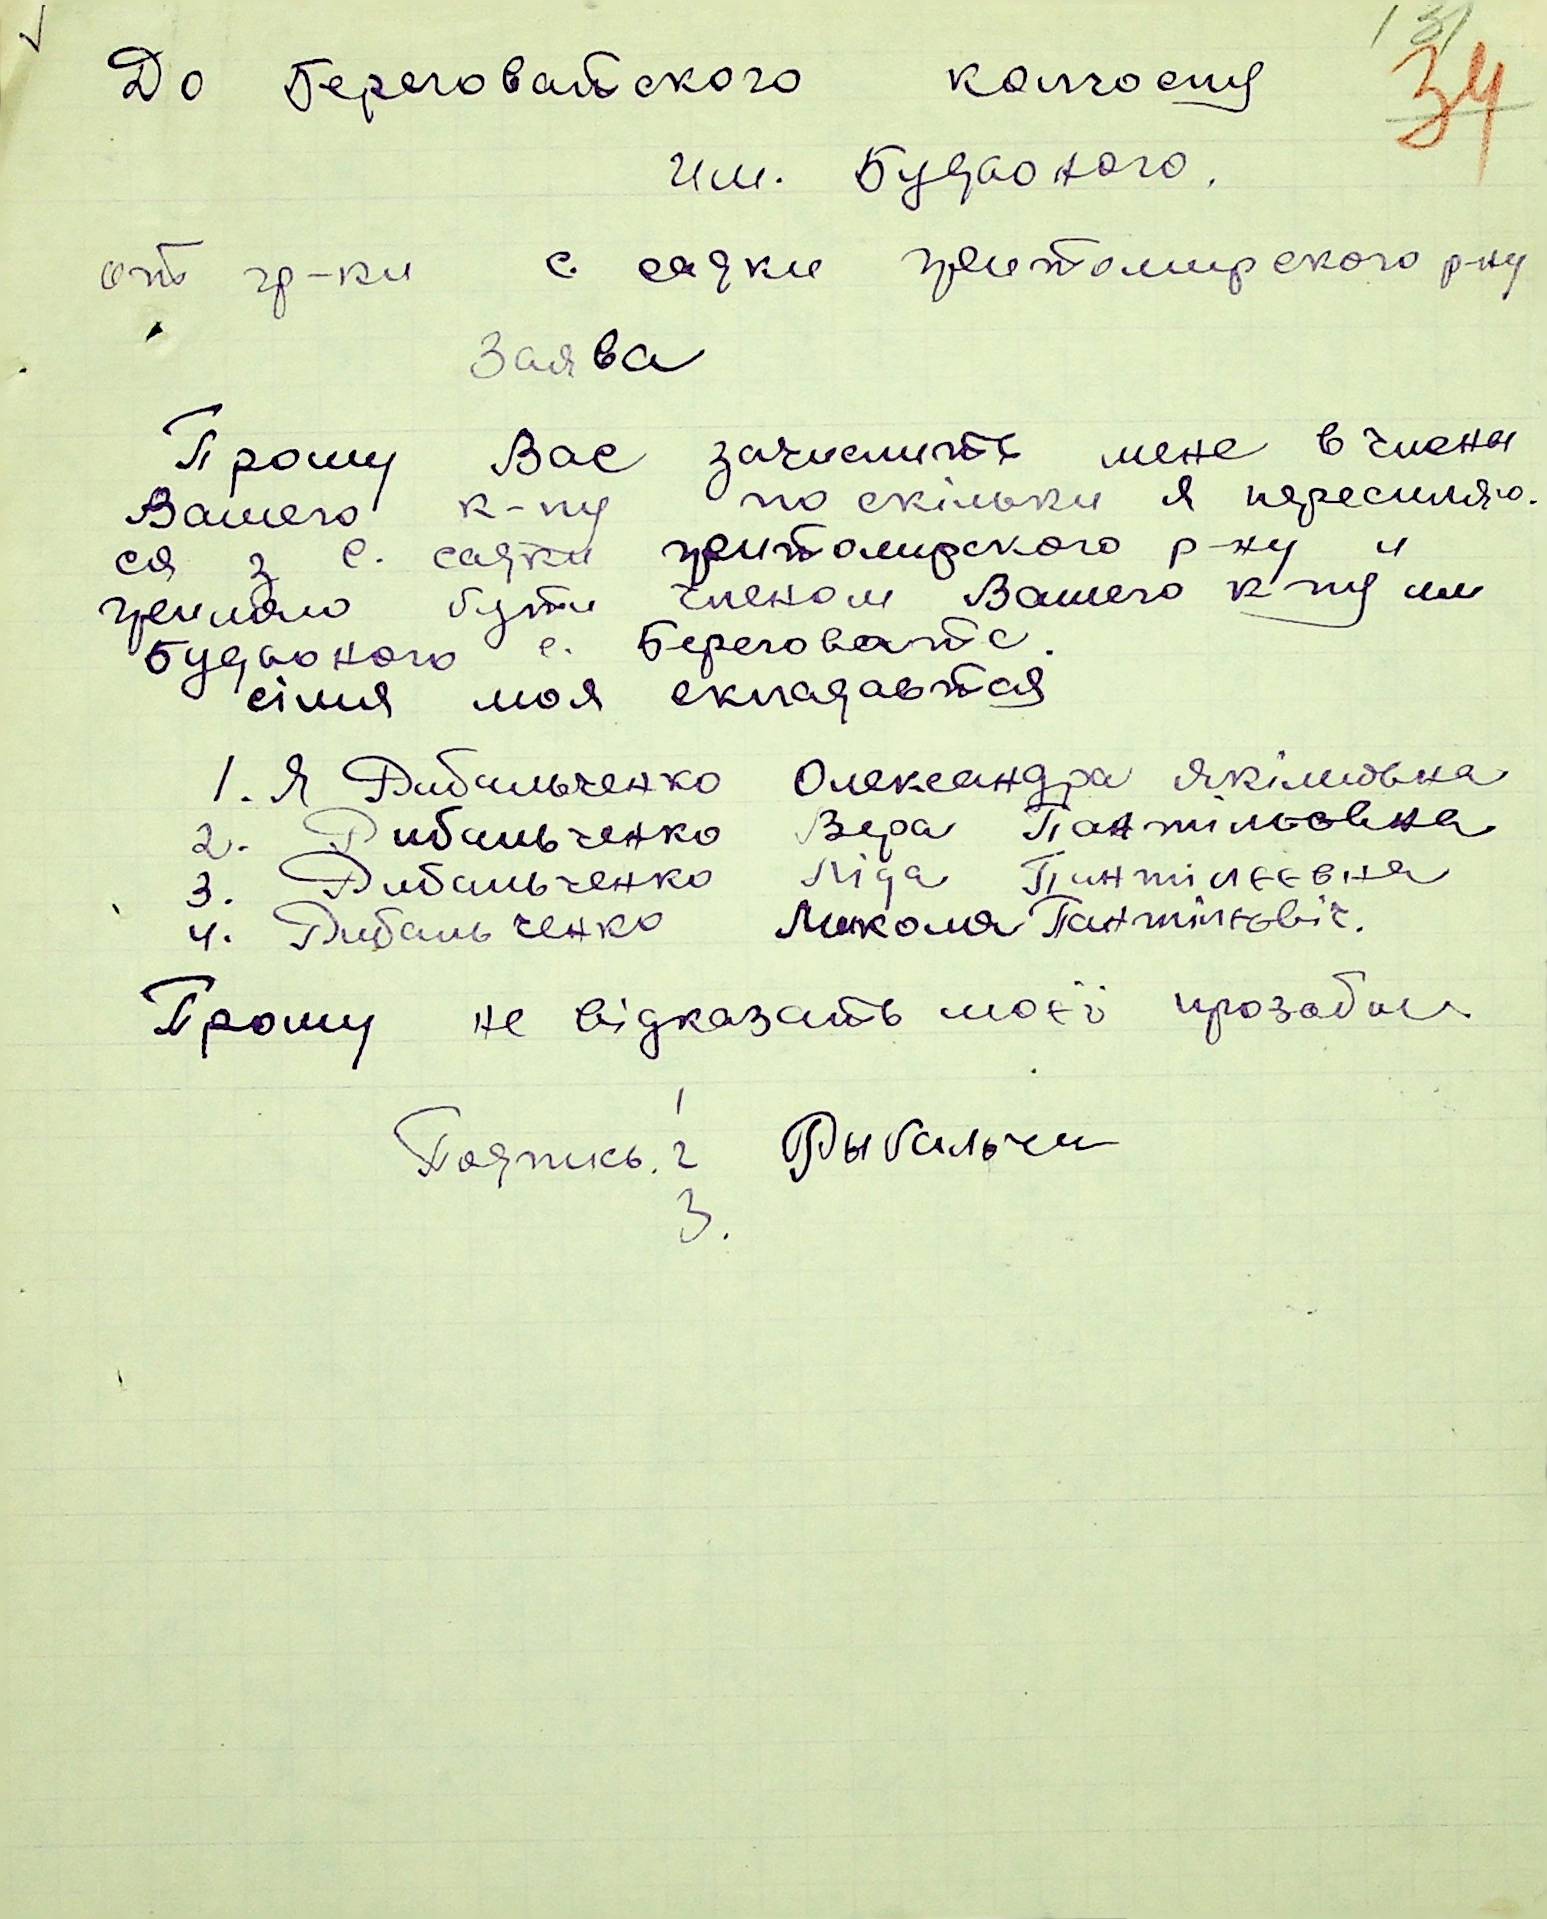 34
До Береговатского колгоспу
им. Будьоного.
от гр-ки с. садки житомирского р-ну
Заява
Прошу Вас зачислить мене в члены
Вашего к-пу по скільки я пяресиляю-
ся з с. садки житомирского р-ну и
жилаю бути членом Вашего к-пу им
Будьоного с. Береговате.
сімя моя складаєтся
1. Я Рибальченко Олександра Якімовна
2. Рибальченко Вера Пантільовна
3. Рибальченко Ліда Пантілєєвна
4. Рибальченко Микола Пантільовіч.
Прошу не відказать моєї
Подпись. 1
2 Рыбальчен
3.